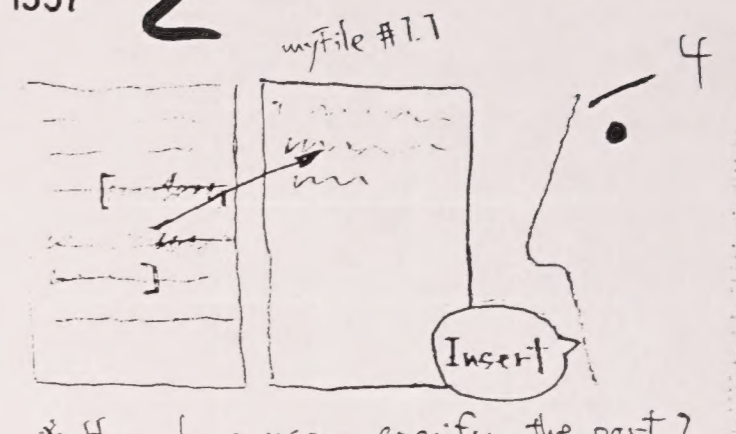 2
myFile #1.1
4
Insert
specify the part?